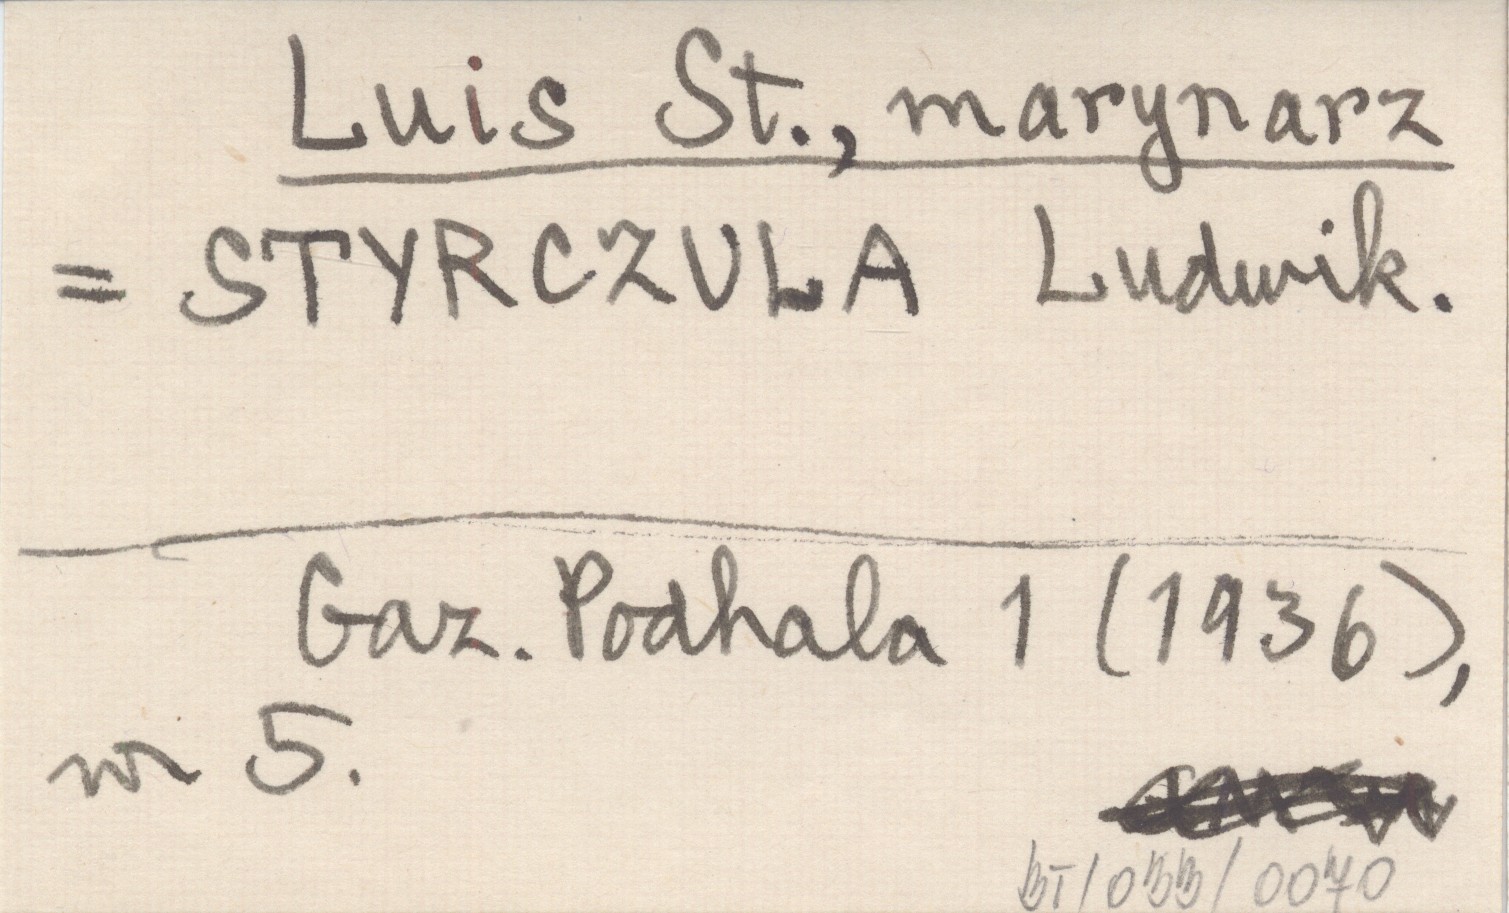 Luis St., marynarz
= STYRCZULA Ludwik.
Gaz. Podhala 1 (1936),
nr 5.
BT/033/0070